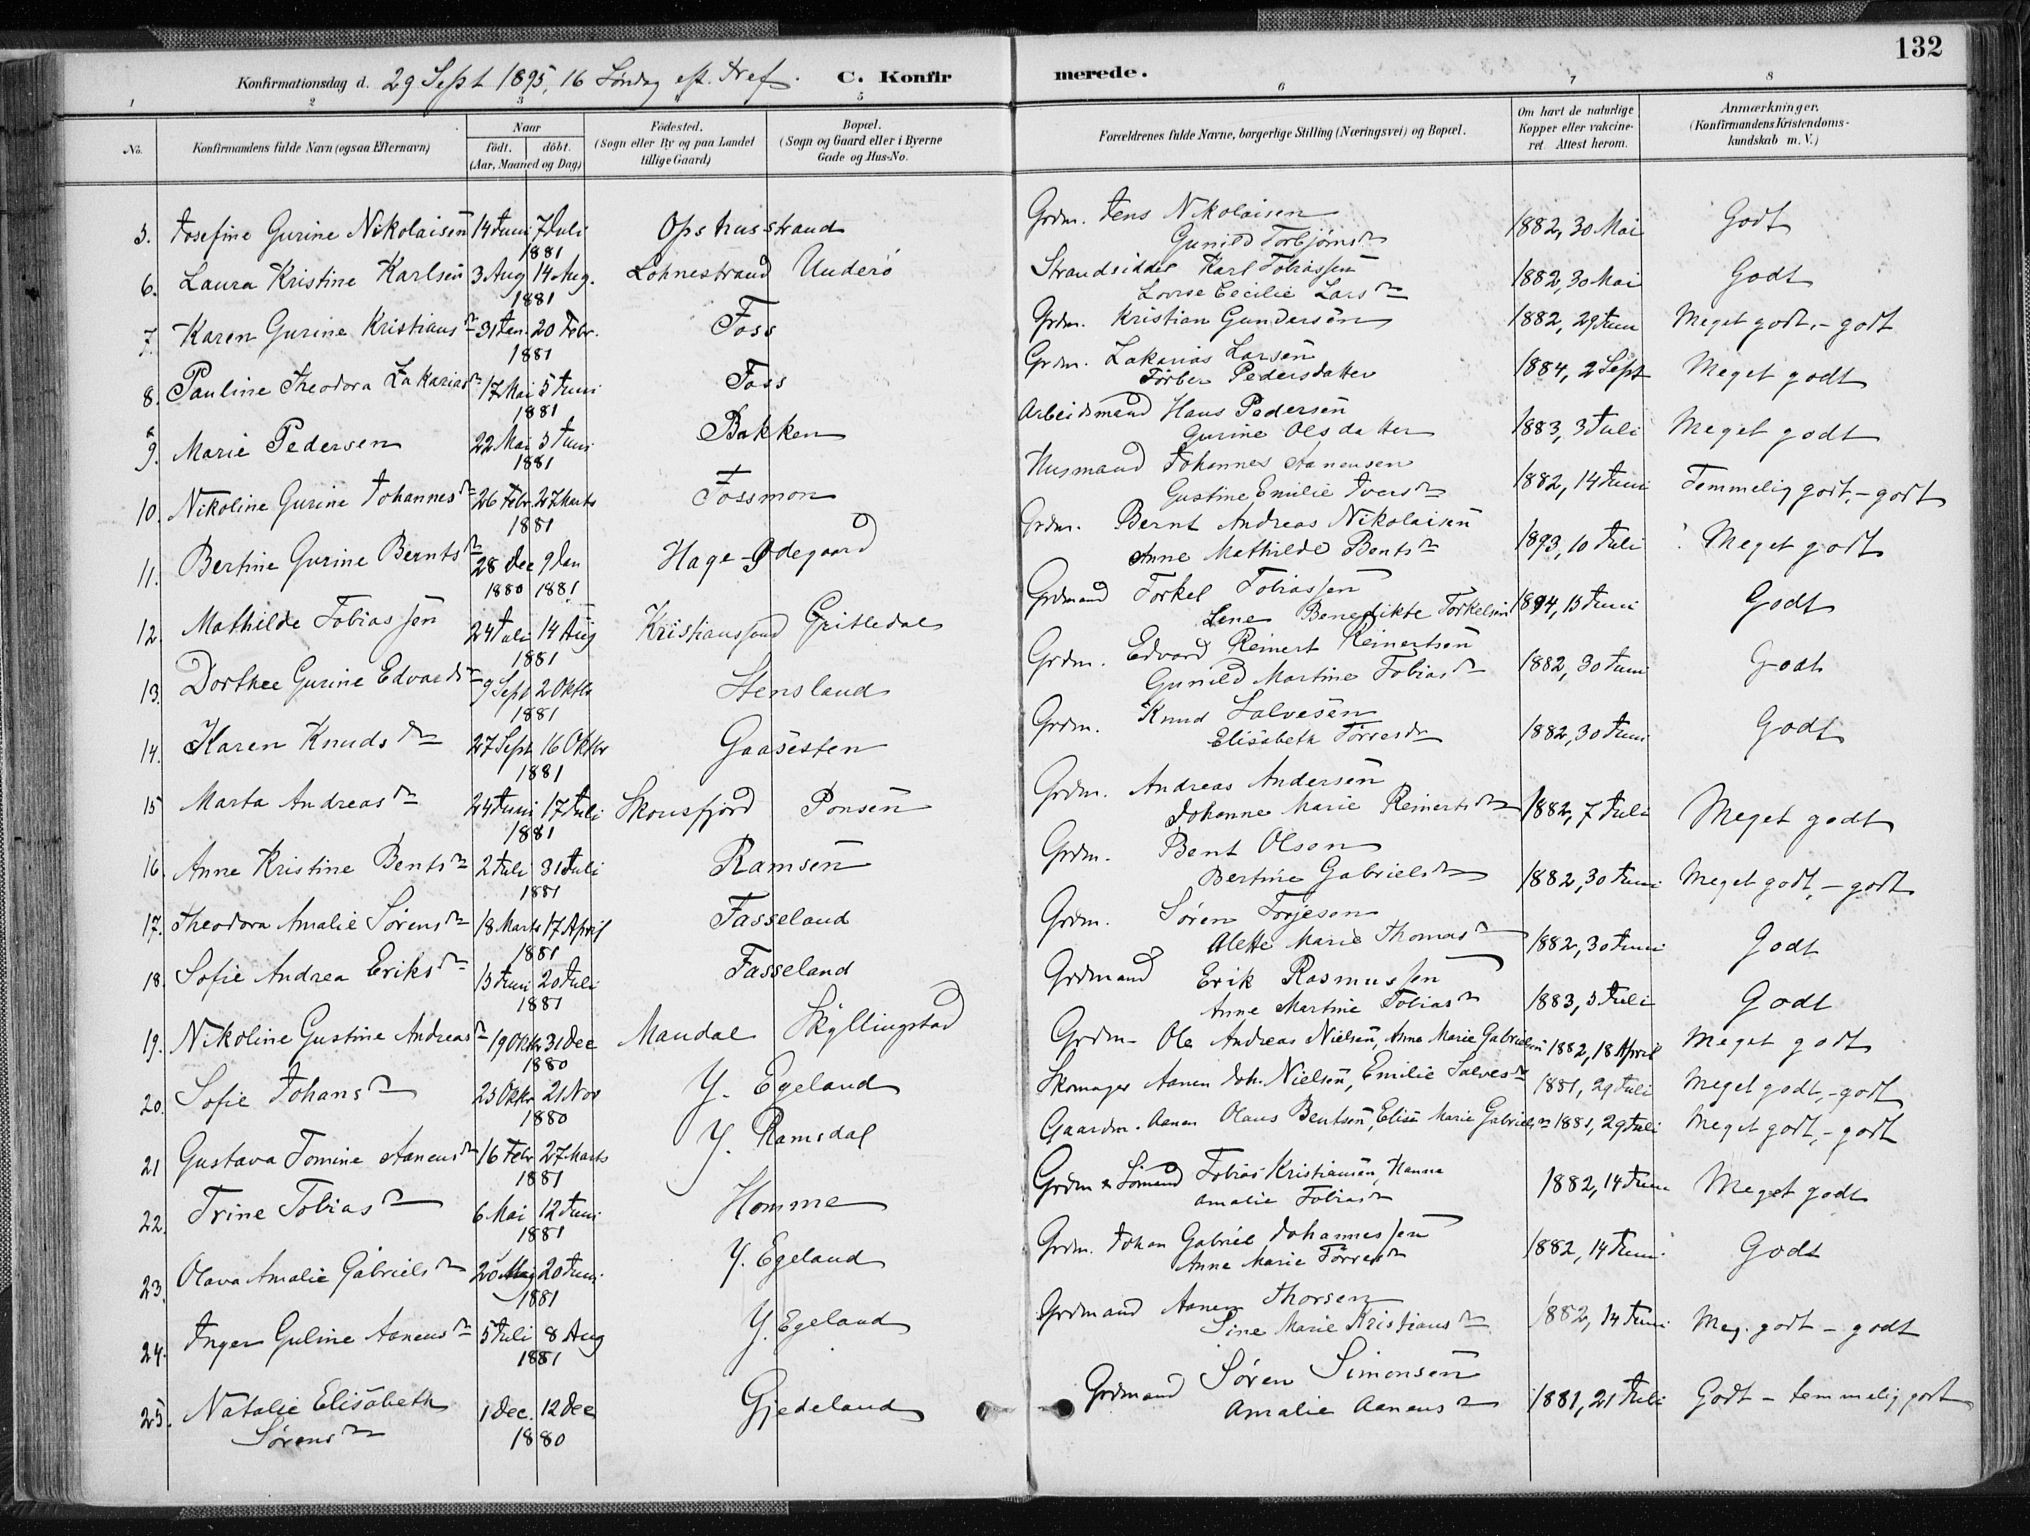 132
Konfirmationsdag d. 29 Sept 1895, 16 Søndag eft. Tref. C. Konfirmerede.
1 2 3 5 6 7 8
No. Konfirmandens fulde Navn (ogsaa Efternavn) Naar født. døbt. (Aar, Maaned og Dag) Fødested. (Sogn eller By og paa Landet tillige Gaard) Bopæl. (Sogn og Gaard eller i Byerne Gade og Hus-No. Forældrenes fulde Navne, borgerlige Stilling (Næringsvei) og Bopæl. Om havt de naturlige Kopper eller vakcineret. Attest herom. Anmærkninger. (Konfirmandens Kristendomskundskab m. V.)
5. Josefine Gurine Nikolaisen 14 Juni 7 Juli 1881 Opshusstrand Grdm. Jens Nikolaisen Gunild Torbjørnsdr 1882, 30 Mai Godt
6. Laura Kristine Karlsen 3 Aug 14 Aug. 1881 Lohnestrand Underø Strandsidder Karl Tobiassen Lovise Cecilie Larsdr 1882, 30 Mai Godt
7. Karen Gurine Kristiansdr 31 Jan. 20 Febr. 1881 Foss Grdm. Kristian Gundersen 1882, 29 Juni Meget godt, - godt
8. Pauline Theodora Zakariasdr 17 Mai 5 Juni 1881 Foss Grdm. Zakarias Larsen Tørber Pedersdatter 1884, 2 Sept Meget godt
9. Marie Pedersen 22 Mai 5 Juni 1881 Bakken Arbeidsmand Hans Pedersen Gurine Olsdatter 1883, 3 Juli Meget godt
10. Nikoline Gurine Johannesdr 26 Febr 27 Marts 1881 Fossmon Husmand Johannes Aanensen Gustine Emilie Iversdr 1882, 14 Juni Temmelig godt, - godt
11. Bertine Gurine Berntsdr 28 Dec 9 Jan 1880 1881 Hage-Ødegaard Grdm. Bernt Andreas Nikolaisen Anne Mathilde Bentsdr 1893, 10 Juli Meget godt
12. Mathilde Tobiassen 24 Juli 14 Aug 1881 Kristianssand Gritledal Grdmand Torkel Tobiassen Lene Benedikte Torkelsen 1894, 15 Juni Godt
13. Dorthee Gurine Edvardsdr 9 Sept 2 Oktb 1881 Stensland Grdm. Edvard Reinert Reinertsen Gunild Martine Tobiasdr 1882, 30 Juni Godt
14. Karen Knudsdr 27 Sept 16 Oktbr 1881 Gaasesten Grdm. Knud Salvesen Elisabeth Tørresdr 1882, 30 Juni Godt
15 Marta Andreasdr 24 Juni 17 Juli 1881 Skonsfjord Ponsen Grdm. Andreas Andersen Johanne Marie Reinertsdr 1882, 7 Juli Meget godt
16. Anne Kristine Bentsdr 2 Juli 31 Juli 1881 Ramsen Grdm. Bent Olsen Bertine Gabrielsdr 1882, 30 Juni Meget godt, - godt
17. Theodora Amalie Sørensdr 18 Marts 17 April 1881 Fasseland Grdm. Søren Torjesen Alette Marie Thomasdr 1882, 30 Juni Godt
18. Sofie Andrea Eriksdr 13 Juni 20 Juli 1881 Fasseland Grdmand Erik Rasmussen Anne Martine Tobiasdr 1883, 5 Juli Godt
19. Nikoline Gustine Andreasdr 19 Oktbr 31 Dec 1880 Mandal Skyllingstad Grdm- Ole Andreas Nielsen, Anne Marie Gabrielsen 1882, 18 April Meget godt
20. Sofie Johansdr 25 Oktbr 21 Nov 1880 Y. Egeland Skomager Aanen Joh. Nielsen, Emilie Salvesdr 1881, 29 Juli Meget godt, - godt
21 Gustava Tomine Aanensdr 16 Febr 27 Marts 1881 Y. Ramsdal Gaardm. Aanen Olaus Bentsen, Elise Marie Gabrielsdr 1881, 29 Juli Meget godt, - godt
22. Trine Tobiasdr 6 Mai 12 Juni 1881 Homme Grdm & Sømand Tobias Kristiansen, Hanna Amalie Tobiasdr 1882, 14 Juni Meget godt
23. Olava Amalie Gabrielsdr 20 Maj 20 Juni 1881 Y. Egeland Grdm. Johan Gabriel Johannessen Anne Marie Tørresdr 1882, 14 Juni Godt
24. Inger Guline Aanensdr 5 Juli 8 Aug 1881 Y. Egeland Grdmand Aanen Thorsen Sine Marie Kristiansdr 1882, 14 Juni Meg. godt - godt
25. Natalie Elisabeth Sørensdr 1 Dec. 12 Dec 1880 Gjedeland Grdmand Søren Simonsen Amalie Aanensdr 1881, 21 Juli Godt - temmelig godt